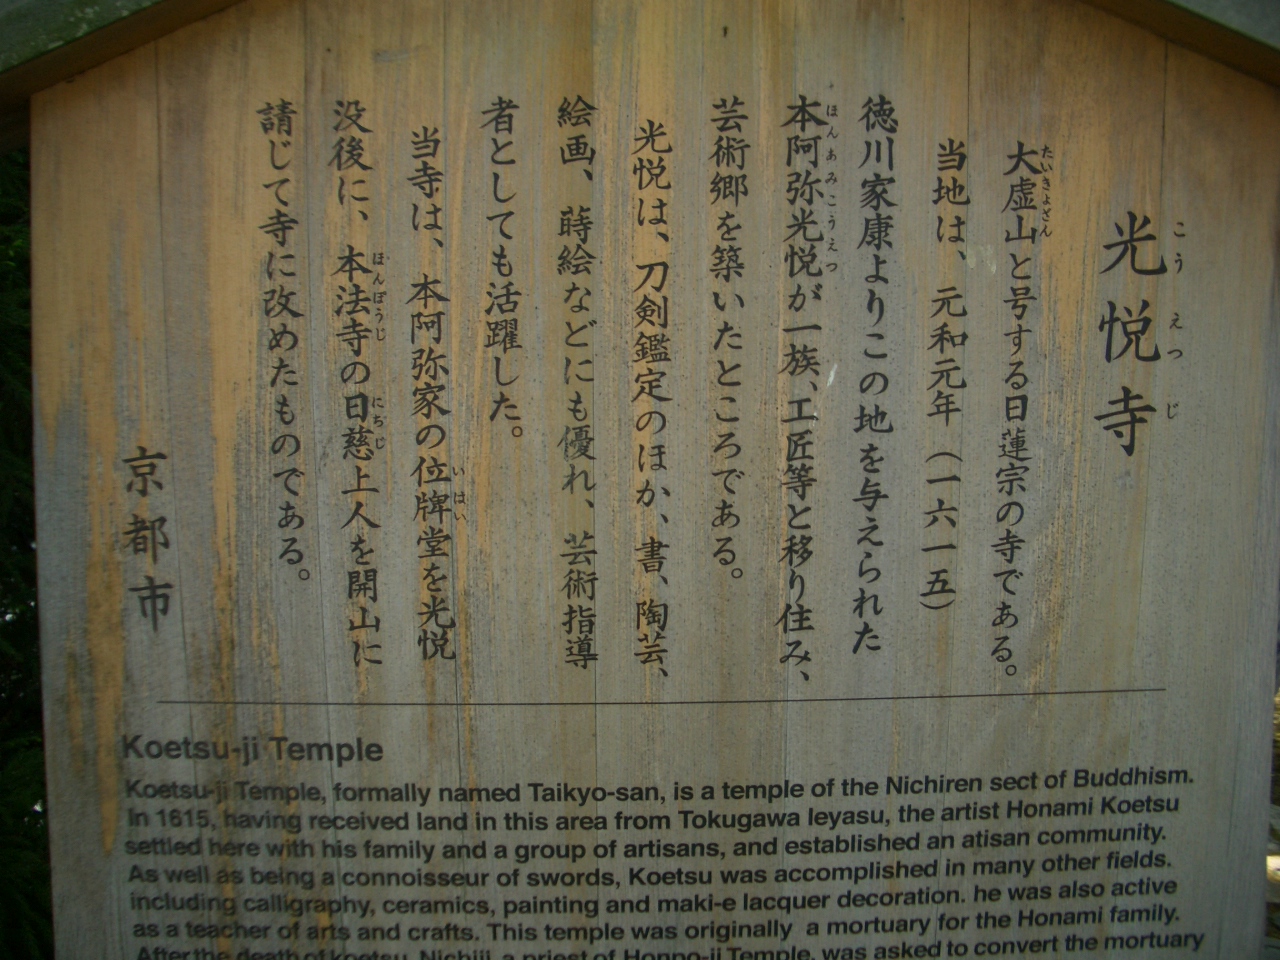 光悦寺
こうえつじ
大虚山と号する日蓮宗の寺である。
たいきょざん
当地は、元和元年（一六一五）
徳川家康よりこの地を与えられた
本阿弥光悦が一族、工匠等と移り住み、
ほんあみこうえつ
芸術郷を築いたところである。
光悦は、刀剣鑑定のほか、書、陶芸、
絵画、蒔絵などにも優れ、芸術指導
者としても活躍した。
当寺は、本阿弥家の位牌堂を光悦
いはい
没後に、本法寺の日慈上人を開山に
ほんぽうじ
にちじ
請じて寺に改めたものである。
京都市
Koetsu-ji Temple
Koetsu-ji Temple, formally named Taikyo-san, is a temple of the Nichiren sect of Buddhism.
In 1615, having received land in this area from Tokugawa Ieyasu, the artist Honami Koetsu
settled here with his family and a group of artisans, and established an atisan community.
As well as being a connoisseur of swords, Koetsu was accomplished in many other fields.
including calligraphy, ceramics, painting and maki-e lacquer decoration. he was also active
as a teacher of arts and crafts. This temple was originally a mortuary for the Honami family.
After the death of koetsu, Nichiji, a priest of Honpo-ji Temple, was asked to convert the mortuary